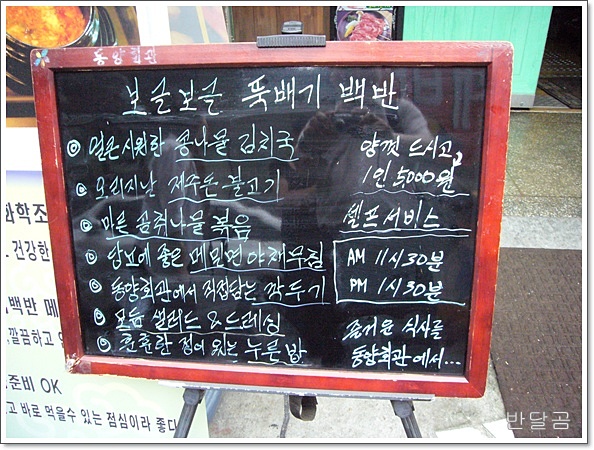 동양회관
보글보글 뚝배기 백반
◎ 얼큰시원한 콩나물 김치국
◎ 오리지날 제주돈불고기
◎ 마른 곤취나물 볶음
◎ 당뇨에 좋은 메밀면야채무침
◎ 동양회관에서 직접담는 깍두기
◎ 모듬 샐러드 & 드레싱
◎ 훈훈한 정이 있는 누른밥
양껏 드시고,
1인 5,000원
셀프서비스
AM 11시30분
PM 1시30분
즐거운 식사를
동양회관에서...
화학조
. 건강한
백반 메
.깔끔하고
.준비 OK
고 바로 먹을수 있는 점심이라 좋다
반달곰